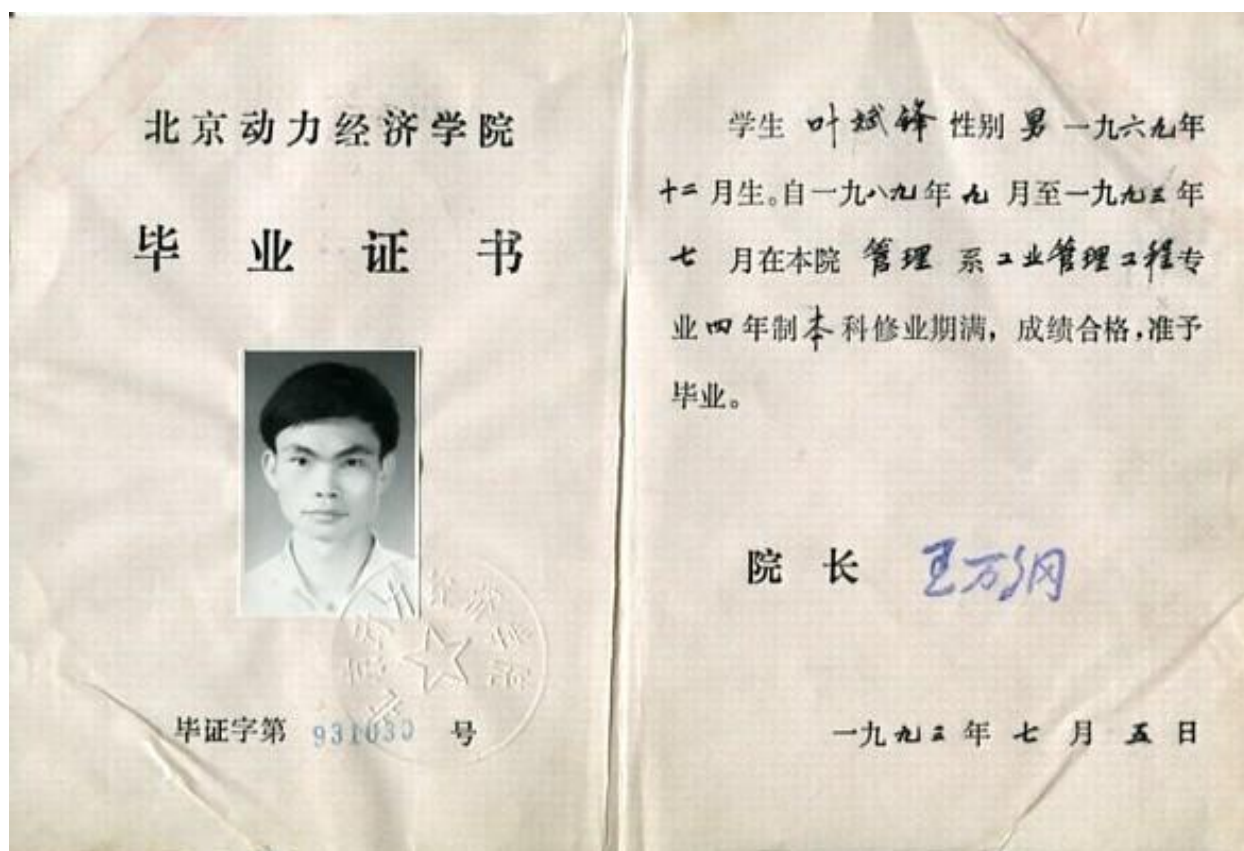 北京动力经济学院
毕业证书
毕证字第 931030 号
学生 叶斌锋 性别 男 一九六九年
十二月生。自一九八九年九月至一九九三年
七 月在本院 管理 系工业管理工程专
业四年制本科修业期满，成绩合格，准予
毕业。
院 长 王万纲
一九九三年 七 月 五 日
北京动力经济学院